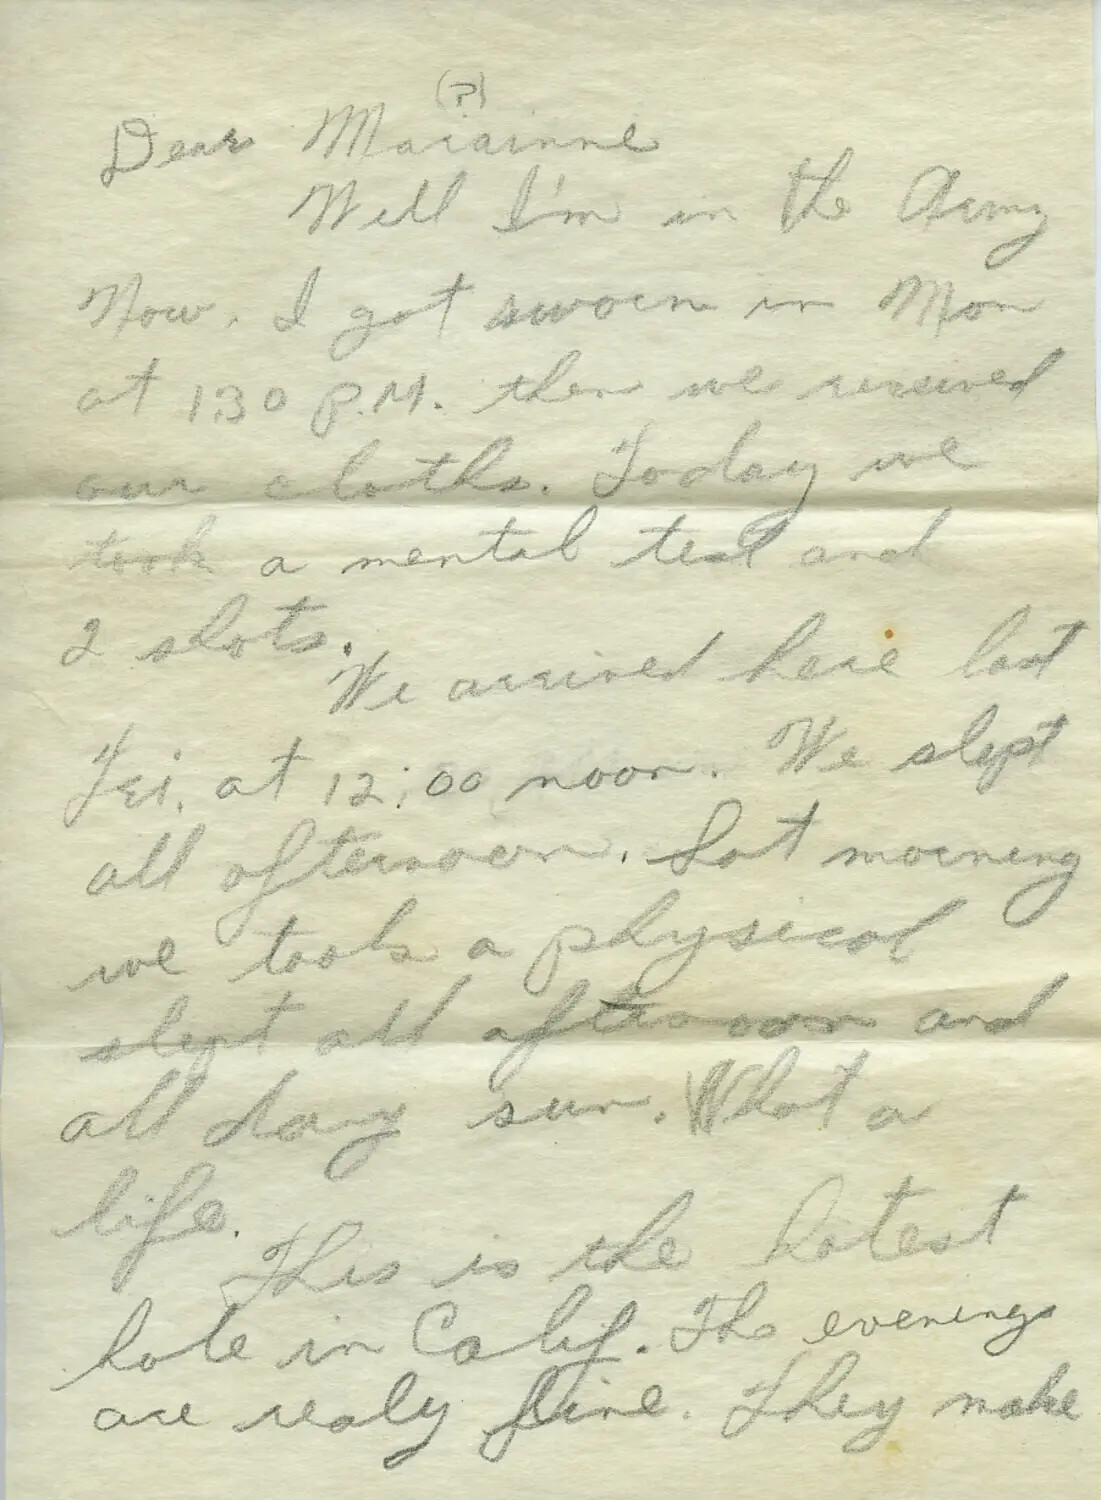 (?)
Dear Mariainne
Well I'm in the Army
Now. I got sworn in Mon
at 1:30 P.M. then we received
our cloths. Today we
took a mental test and
2 shots.
We arrived here last
Fri. at 12:00 noon. We slept
all afternoon. Sat morning
we took a physical
slept all afternoon and
all day sun. What a
life.
This is the hotest
hole in Calif. The evenings
are realy fine. They make